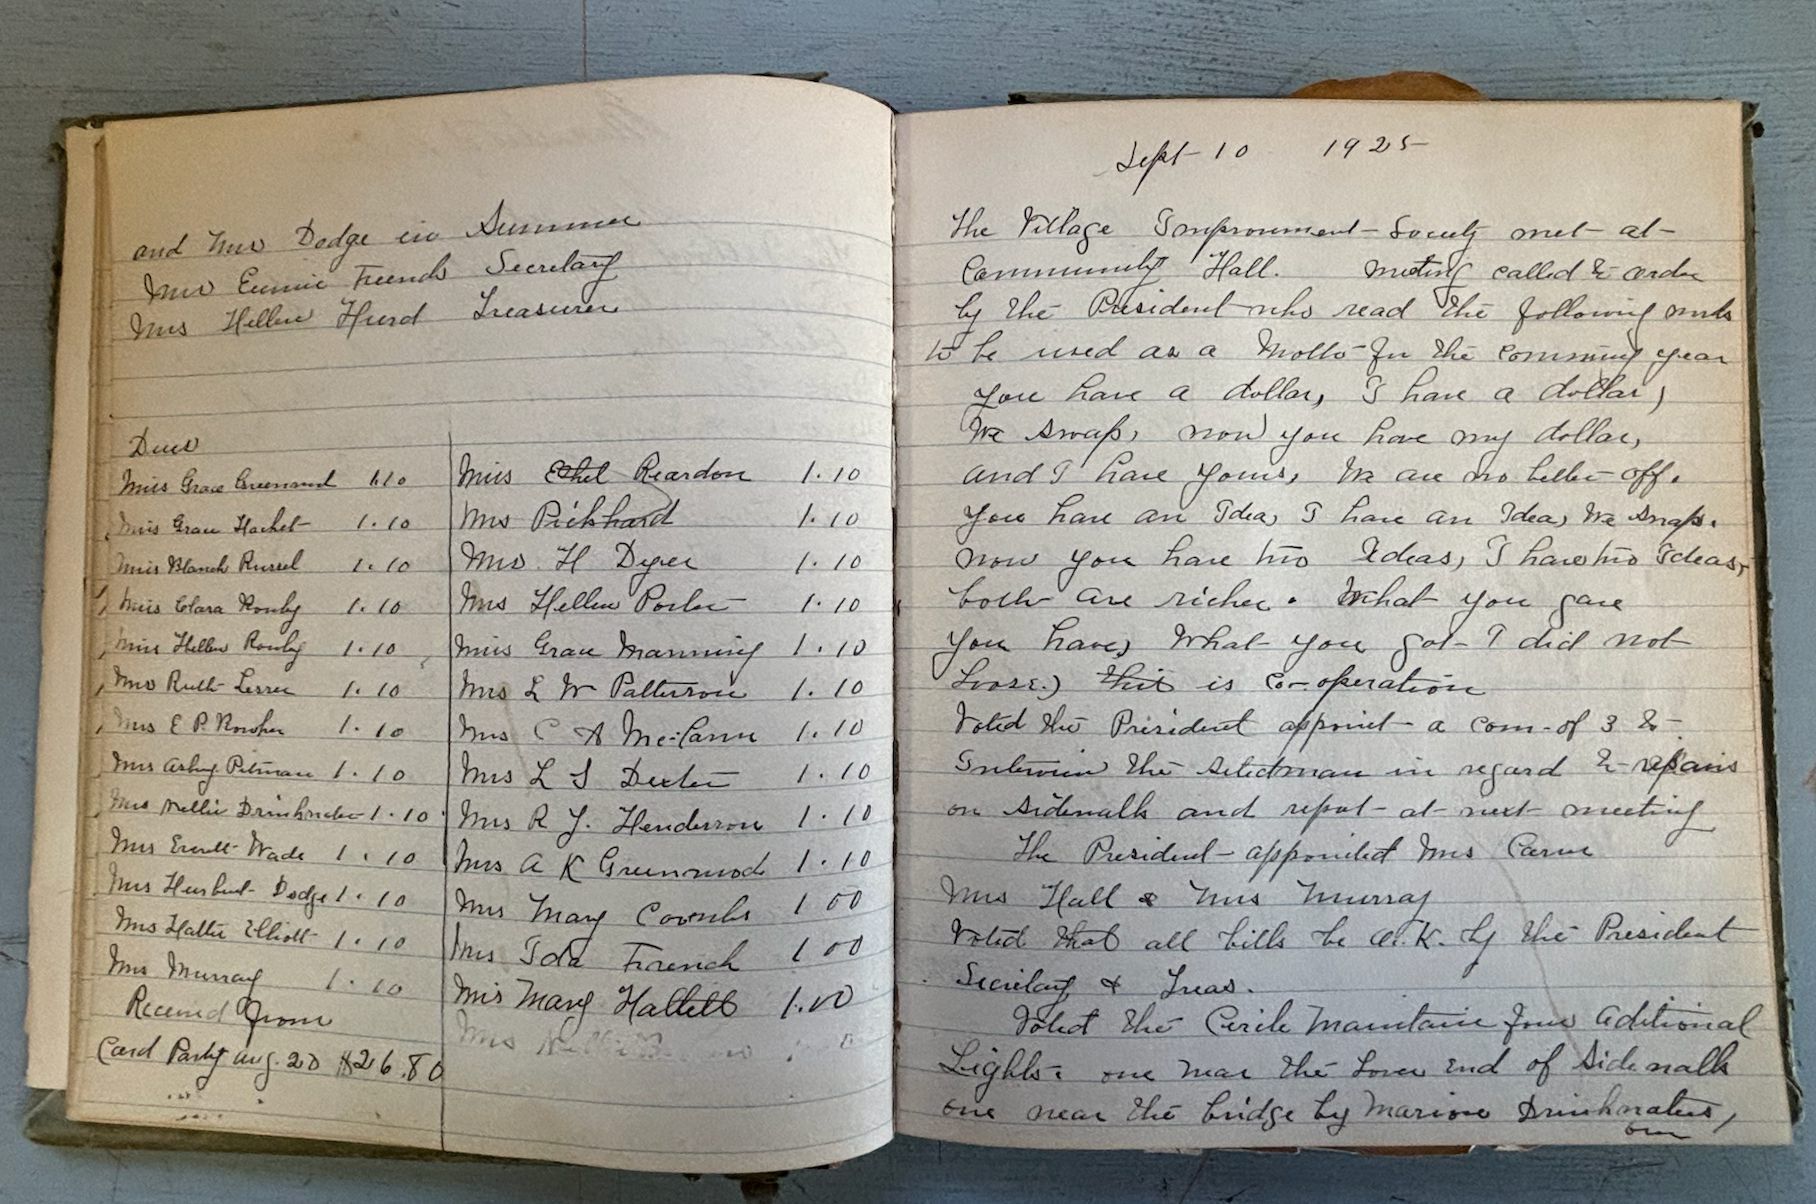 and Mrs Dodge in Summer
Mrs Eunice French Secretary
Mrs Hellen Hurd Treasurer
Dues
Miss Grace Greenwood 1.10
Miss Grace Hachet 1.10
Miss Blanch Russel 1.10
Miss Clara Rowby 1.10
Miss Hellen Rowby 1.10
Mrs Ruth 1.10
Mrs E P 1.10
Mrs Pitman 1.10
Mrs Nellie Drinkwater 1.10
Mrs Everett Wade 1.10
Mrs Herbert Dodge 1.10
Mrs Hattie Elliott 1.10
Mrs Murray 1.10
Received from
Card Party Aug. 20 $26.80
Miss Ethel Reardon 1.10
Mrs Pickhard 1.10
Mrs. H Dyer 1.10
Mrs Hellen Porter 1.10
Miss Grace Manning 1.10
Mrs L W Patterson 1.10
Mrs C A 1.10
Mrs L S Dexter 1.10
Mrs R Y. Henderson 1.10
Mrs A K Greenwood 1.10
Mrs Mary Coombs 1 00
Mrs Ida French 1 00
Mrs Mary Hallett 1.00
Mrs
Sept 10 1925
The Village Improvment Society met at
Community Hall. Meeting called to order
by the President who read the following
to be used as a Motto for the comming year
You have a dollar, I have a dollar,
We swap, now you have my dollar,
and I have yours, We are no better off.
You have an Idea, I have an Idea, We swap.
now you have two Ideas, I have two Ideas,
both are richer. What you gave
you have, What you got I did not
Loose.) this is Co-operation
Voted the President appoint a com-of 3 to
Interview the Selectman in regard to repairs
on sidewalk and report at next meeting
The President appointed Mrs Carne
Mrs Hall & Mrs Murray
Voted that all bills be O.K. by the President
Secretary & Treas.
Voted the Circle Maintain four aditional
Lights. one near the Lower End of Sidewalk
one near the bridge by Marion Drinkwaters,
one